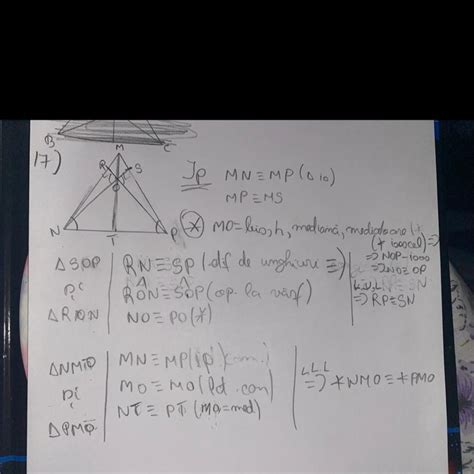 B C
17)
M
R S
O
N T P
Ip MN ≡ MP (Δ is)
MP ≡ MS
(*) MO = bis, h, mediană, mediatoare (*
(* isoscel) ⇒
⇒ NOP-isos
⇒ NO ≡ OP
ΔSOP
și
ΔRON
RN ≡ SP (dif de unghiuri ≡)
RÔN ≡ SÔP (op. la vârf)
NO ≡ PO (*)
⇒ RP ≡ SN
ΔNMO
și
ΔPMO
MN ≡ MP (ip) (com.)
MO ≡ MO (lat. com)
NT ≡ PT (MO = med)
L.L.L
⇒ ∢NMO ≡ ∢PMO